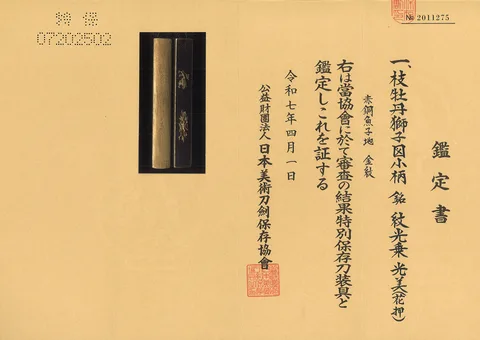 鑑定書
一、枝牡丹獅子図小柄 銘 紋光乗 光美(花押)
赤銅魚子地 金紋
右は當協會に於て審査の結果特別保存刀装具と
鑑定しこれを証する
令和七年四月一日
公益財團法人 日本美術刀劍保存協會
特保
07202502
№ 2011275